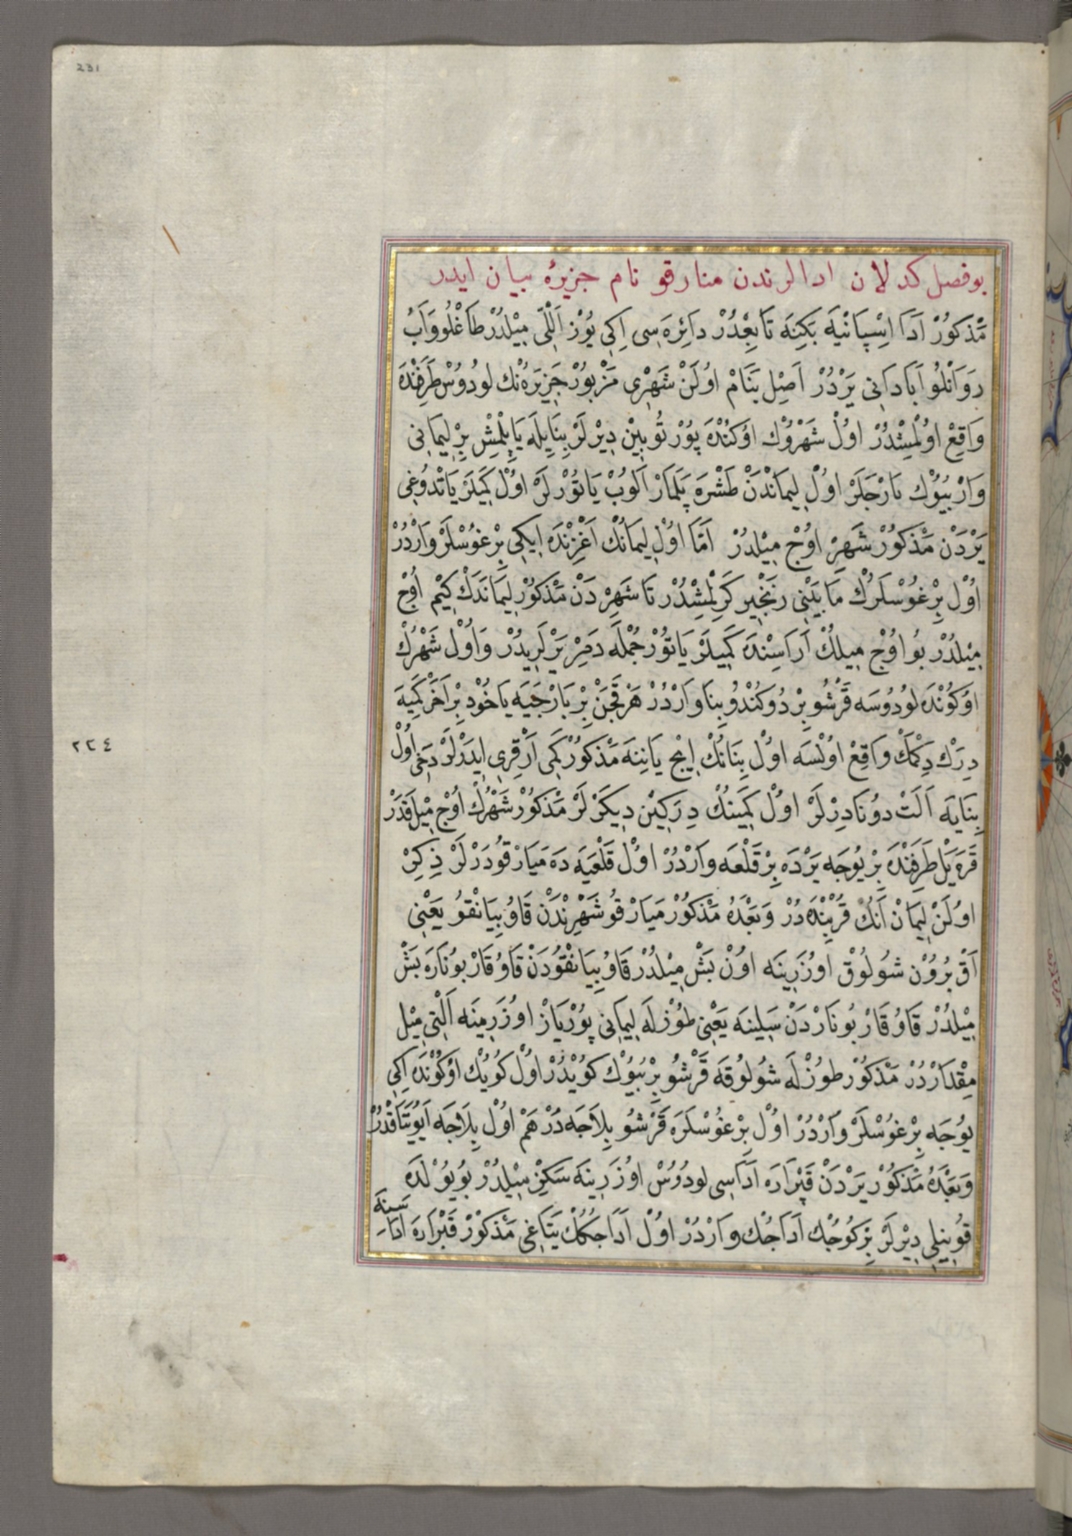 231
بو فصل كدلان ادالرندن منارقو نام جزيرۀ بيان ايدر
مَذكُورْ اَدَا اِسْپَانْيَه بَكِنَه تَابِعْدُرْ دَائِرَه سِى اِكِى يُوزْ اَللِّى مِيْلدُرْ طَاغْلُو وَابُ
رَوَانْلُو آبَادَانِى يَرْدُرْ اَصِلْ بَنَامْ اوُلَنْ شَهْرِى مَزْبُورْ جَزِيرَه نُكْ لودُوسْ طَرَفِنْدَه
وَاقِعْ اوُلْمِشْدُرْ اوُلْ شَهْرُوكْ اوُكُنْدَه پُورْتُو بِينْ دِيْرلَرْ بِنَايِلَه يَاپِلْمِشْ بِرْ لِيمَانِى
وَارْ بُيُوكْ بَارْجَلَرْ اوُلْ لِيمَانْدَنْ طَشْرَه پَلَمَارْ اَلوُبْ يَاتُورْلَرْ اوُلْ كَمِيلَرْ يَاتْدوُغِى
يَرْدَنْ مَذْكُورْ شَهِرْ اوُچْ مِيْلدُرْ اَمَّا اوُلْ لِيمَانُكْ اَغْزِنْدَه ايكِى بِرْغوُسْلَرْ وَارْدُرْ
اوُلْ بِرْغوُسْلَرُكْ مَا بَيْنِى زَنْجِيرْ كَرِلْمِشْدُرْ تَا شَهِرْدَنْ مَذْكُورْ لِيمَانَدَكْ كِيْمْ اُوچْ
مِيْلدُرْ بُو اوُچْ مِيلُكْ اَرَاسِنْدَه كَمِيلَرْ يَاتُورْ جُمْلَه دَمِرْ يَرْلَرِيدُرْ وَاوُلْ شَهْرُكْ
اوُكُونْدَه لوُدُوسَه قَرْشُو بِرْ دُوكُنْدُو بِنَا وَارْدُرْ هَرْ قَچَنْ بِرْ بَارْجَيَه يَاخُودْ بِرْ اَخَرْ كَمِيَه
دِرَكْ دِكْمَكْ وَاقِعْ اوُلْسَه اوُلْ بِنَانُكْ اِيچْ يَانِنَه مَذْكُورْ كَمِى اَرْقِرِى ايدَرْلَرْ دَخِى اوُلْ
بِنَايَه اَلَتْ دوُنَادِرْلَرْ اوُلْ كَمِينُكْ دِرَكِينْ دِيكَرْلَرْ مَذْكُورْ شَهْرُكْ اوُچْ مِيْلْ قَدَرْ
قَرَه يَلْ طَرَفِنْدَه بِرْ يُوجَه يَرْدَه بِرْ قَلْعَه وَارْدُرْ اوُلْ قَلْعَيَه دَه مَيَارْقُو دَرْلَرْ ذِكِرْ
اوُلَنْ لِيمَانْ اَنُكْ قُرْبِنْدَه دُرْ وَبَعْدَهُ مَذْكُورْ مَيَارْقُو شَهْرِنْدَنْ قَاوُ بِيَانْقُو يَعْنِى
اَقْ بُرُونْ شُولُوقْ اوُزَرِينَه اوُنْ بَشْ مِيْلدُرْ قَاوُ بِيَانْقُودَنْ قَاوُ قَارْبُونَارَه بَشْ
مِيْلدُرْ قَاوُ قَارْبُونَارْدَنْ سَلِينَه يَعْنِى طُوزْلَه لِيمَانِى پُورْيَازْ اوُزَرِينَه اَلْتِى مِيْل
مِقْدَارْدُرْ مَذْكُورْ طوُزْلَه شُولُوقَه قَرْشُو بِرْ بُيُوكْ كَويْدُرْ اوُلْ كُويُكْ اوُكُونْدَه اِكِى
يُوجَه بِرْغوُسْلَرْ وَارْدُرْ اوُلْ بِرْغوُسْلَرَه قَرْشُو پِلَاجَه دُرْ هَمْ اوُلْ پِلَاجَه اَيُو يَتَاقْدُرْ
وَبَعْدَهُ مَذْكُورْ يَرْدَنْ قَپْرَارَه اَدَاسِى لودُوسْ اوُزَرِينَه سَكِزْ مِيْلدُرْ بُو يُولْدَه
قوُنِيلِى دِيْرلَرْ بِرْ كُوجُكْ اَدَاجُكْ وَارْدُرْ اوُلْ اَدَاجُكُكْ يَتَاغِى مَذْكُورْ قَبْرَارَه اَدَاسِنَه
٢٢٤